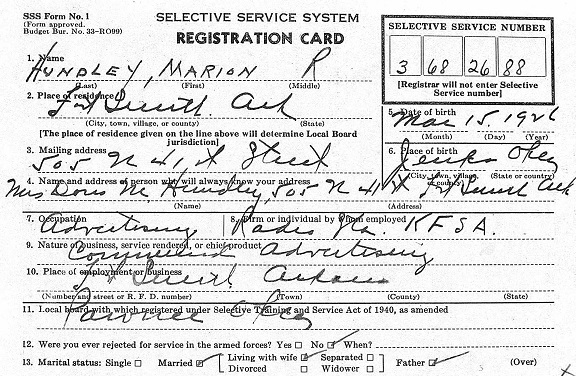 SSS Form No. 1
(Form approved.
Budget Bur. No. 33-RO99)
SELECTIVE SERVICE SYSTEM
REGISTRATION CARD
SELECTIVE SERVICE NUMBER
3 68 26 88
[Registrar will not enter Selective Service number]
1. Name
HUNDLEY, MARION R
(Last) (First) (Middle)
2. Place of residence
Fort Smith Ark
(City, town, village, or county) (State)
[The place of residence given on the line above will determine Local Board jurisdiction]
5. Date of birth
Mar 15, 1926
(Month) (Day) (Year)
3. Mailing address
505 N 41 st Street
6. Place of birth
Jenks Okla
(City, town, village, or county) (State or country)
4. Name and address of person who will always know your address
Mrs Doris M Hundley, 505 N 41 st Ft Smith Ark
(Name) (Address)
7. Occupation
Advertising
8. Firm or individual by whom employed
Radio Sta. KFSA.
9. Nature of business, service rendered, or chief product
Commercial Advertising
10. Place of employment or business
Ft Smith Arkansas
(Number and street or R. F. D. number) (Town) (County) (State)
11. Local board with which registered under Selective Training and Service Act of 1940, as amended
Pawnee Okla
12. Were you ever rejected for service in the armed forces? Yes ☐ No ☑ When?
13. Marital status: Single ☐ Married ☑ [Living with wife ☑ Separated ☐ Father ☑ (Over)
Divorced ☐ Widower ☐